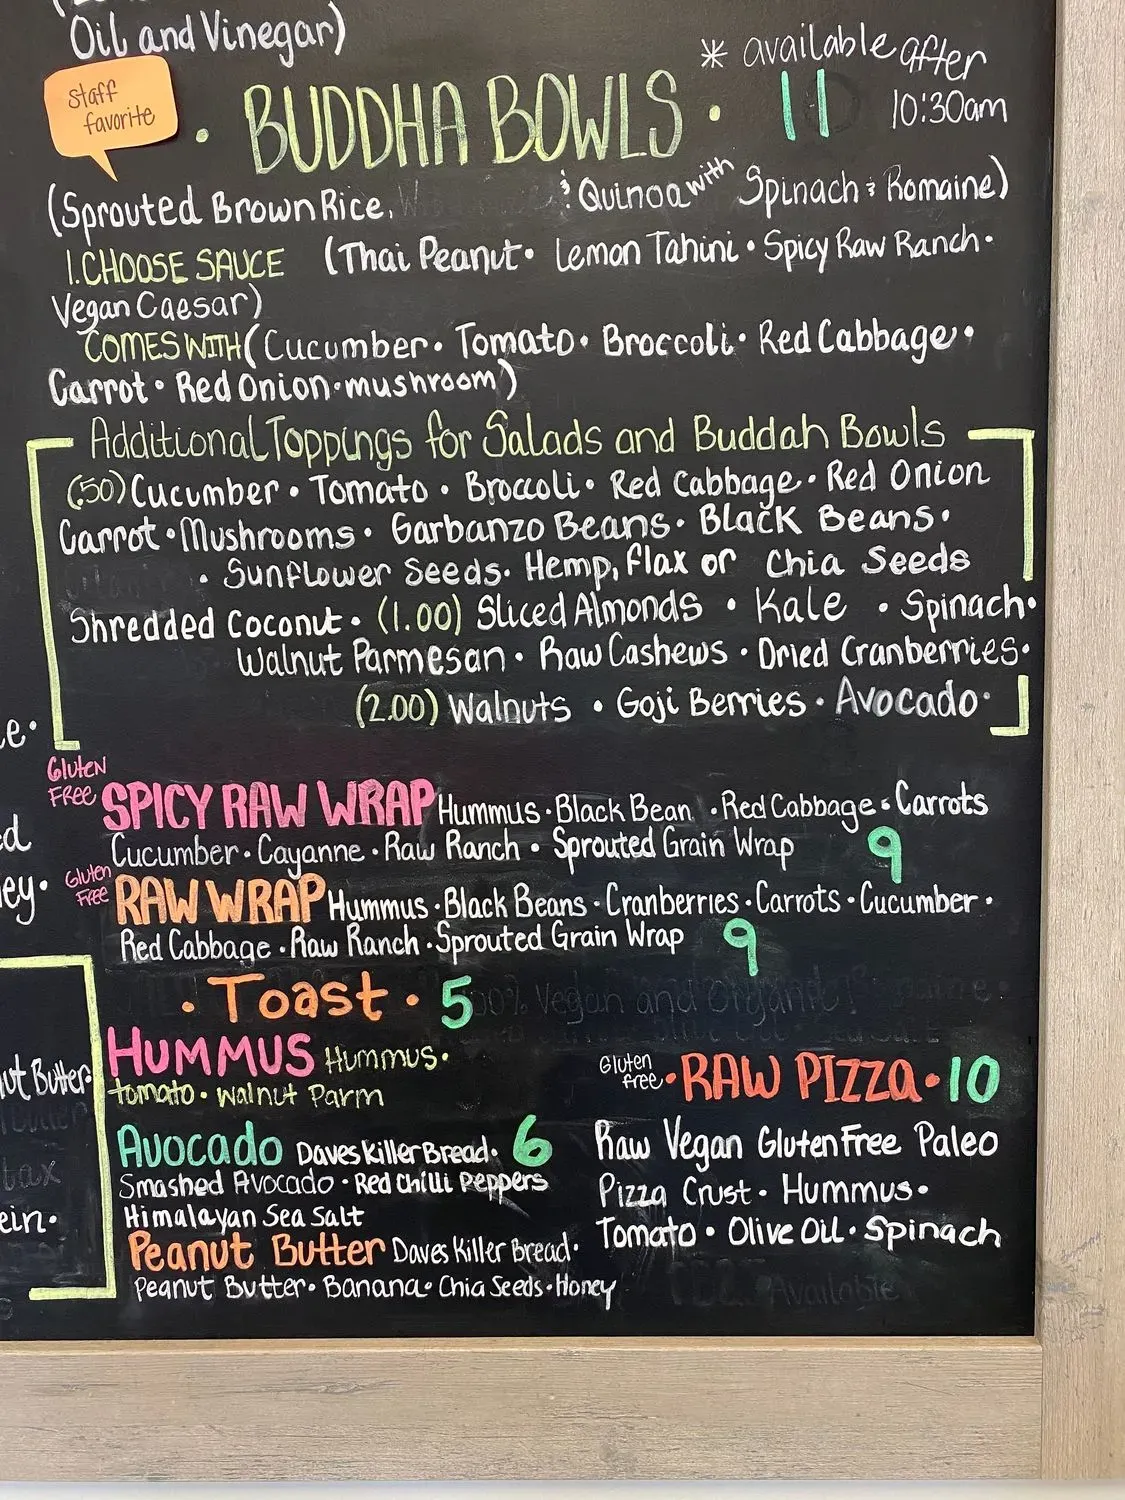 Oil and Vinegar)
staff
favorite
* available after
10:30am
· BUDDHA BOWLS · 11
(Sprouted Brown Rice, & Quinoa with Spinach & Romaine)
1. CHOOSE SAUCE (Thai Peanut · Lemon Tahini · Spicy Raw Ranch ·
Vegan Caesar)
COMES WITH (Cucumber · Tomato · Broccoli · Red Cabbage ·
Carrot · Red Onion · mushroom)
Additional Toppings for Salads and Buddah Bowls
(.50) Cucumber · Tomato · Broccoli · Red Cabbage · Red Onion
Carrot · Mushrooms · Garbanzo Beans · Black Beans ·
· Sunflower Seeds · Hemp, Flax or Chia Seeds
Shredded Coconut · (1.00) Sliced Almonds · Kale · Spinach ·
Walnut Parmesan · Raw Cashews · Dried Cranberries ·
(2.00) Walnuts · Goji Berries · Avocado ·
Gluten
Free
SPICY RAW WRAP Hummus · Black Bean · Red Cabbage · Carrots
Cucumber · Cayanne · Raw Ranch · Sprouted Grain Wrap 9
Gluten
Free
RAW WRAP Hummus · Black Beans · Cranberries · Carrots · Cucumber ·
Red Cabbage · Raw Ranch · Sprouted Grain Wrap 9
· Toast · 5
HUMMUS Hummus ·
tomato · walnut Parm
Avocado Daves Killer Bread · 6
Smashed Avocado · Red Chilli Peppers
Himalayan Sea Salt
Peanut Butter Daves Killer Bread ·
Peanut Butter · Banana · Chia Seeds · Honey
Gluten
free · RAW PIZZA · 10
Raw Vegan Gluten Free Paleo
Pizza Crust · Hummus ·
Tomato · Olive Oil · Spinach